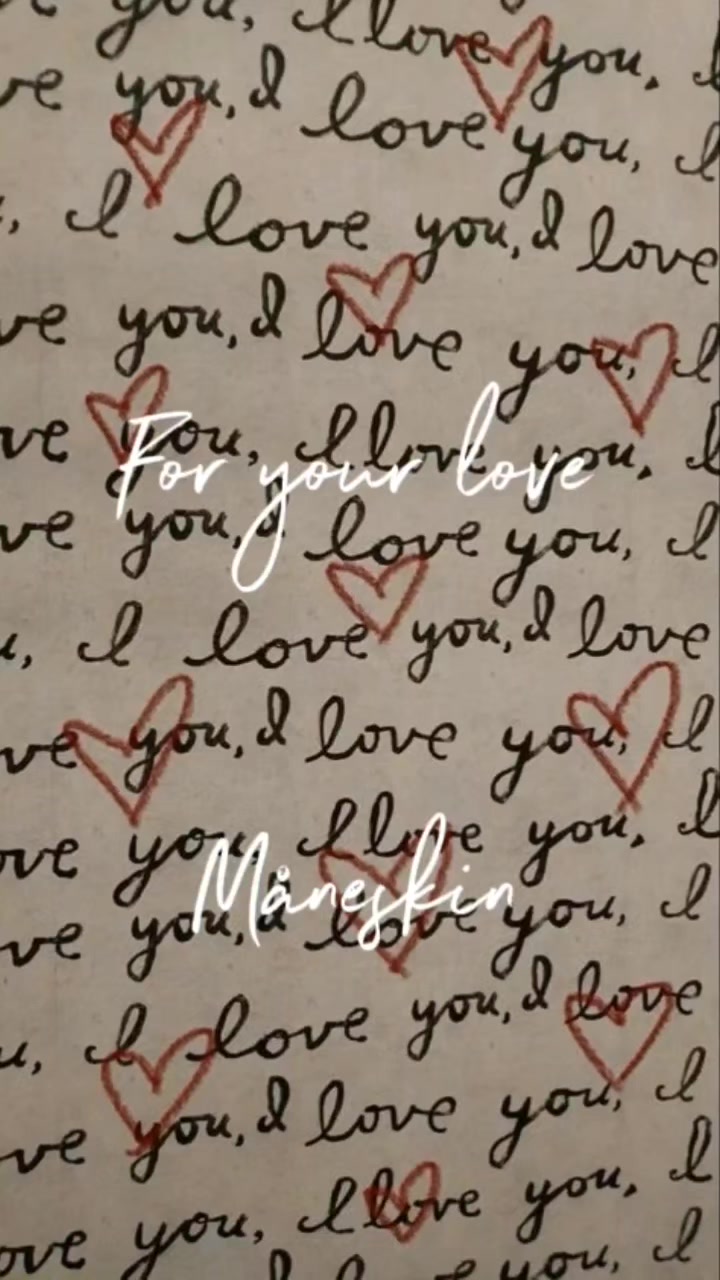 you, I love you,
ve you, I love you, I
, I love you, I love
ve you, I love you, I
ve you, I love you, I
For your love
ve you, I love you, I
u, I love you, I love
ve you, I love you, I
ove you, I love you, I
Måneskin
ve you, I love you, I
u, I love you, I love
ve you, I love you, I
ove you, I love you, I
you, I